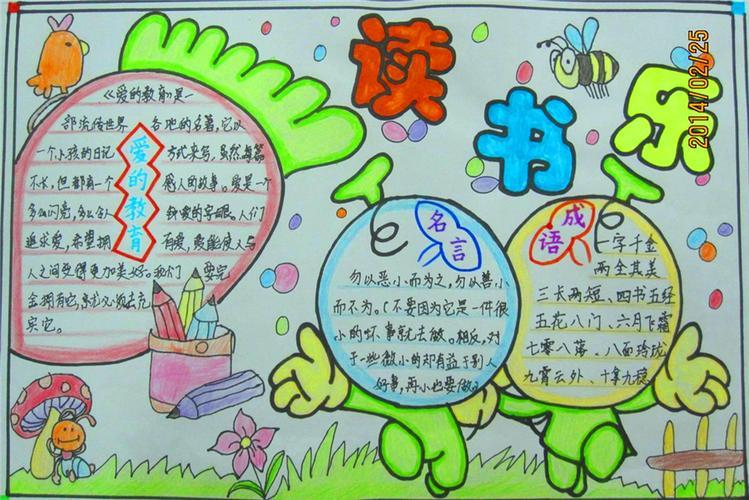 读书乐
2014/02/25
《爱的教育》是一
部流传世界各地的名著,它以
一个小孩的日记方式来写,虽然每篇
不长,但都有一个感人的故事。爱是一个
多么闪亮,多么令人钟爱的字眼。人们
追求爱,希望拥有爱,爱能使人与
人之间变得更加美好。我们要完
全拥有它,就必须去充
实它。
爱的教育
名言
勿以恶小而为之,勿以善小
而不为。(不要因为它是一件很
小的坏事就去做。相反,对
于一些微小的却有益于别人
好事,再小也要做。)
成语
一字千金
两全其美
三长两短、四书五经
五花八门、六月飞霜
七零八落、八面玲珑
九霄云外、十拿九稳